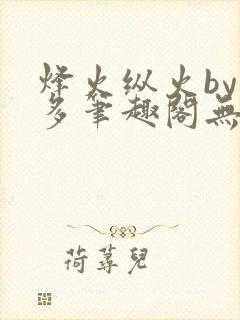 烽火纵火by
多笔趣阁無
荷蕁兒